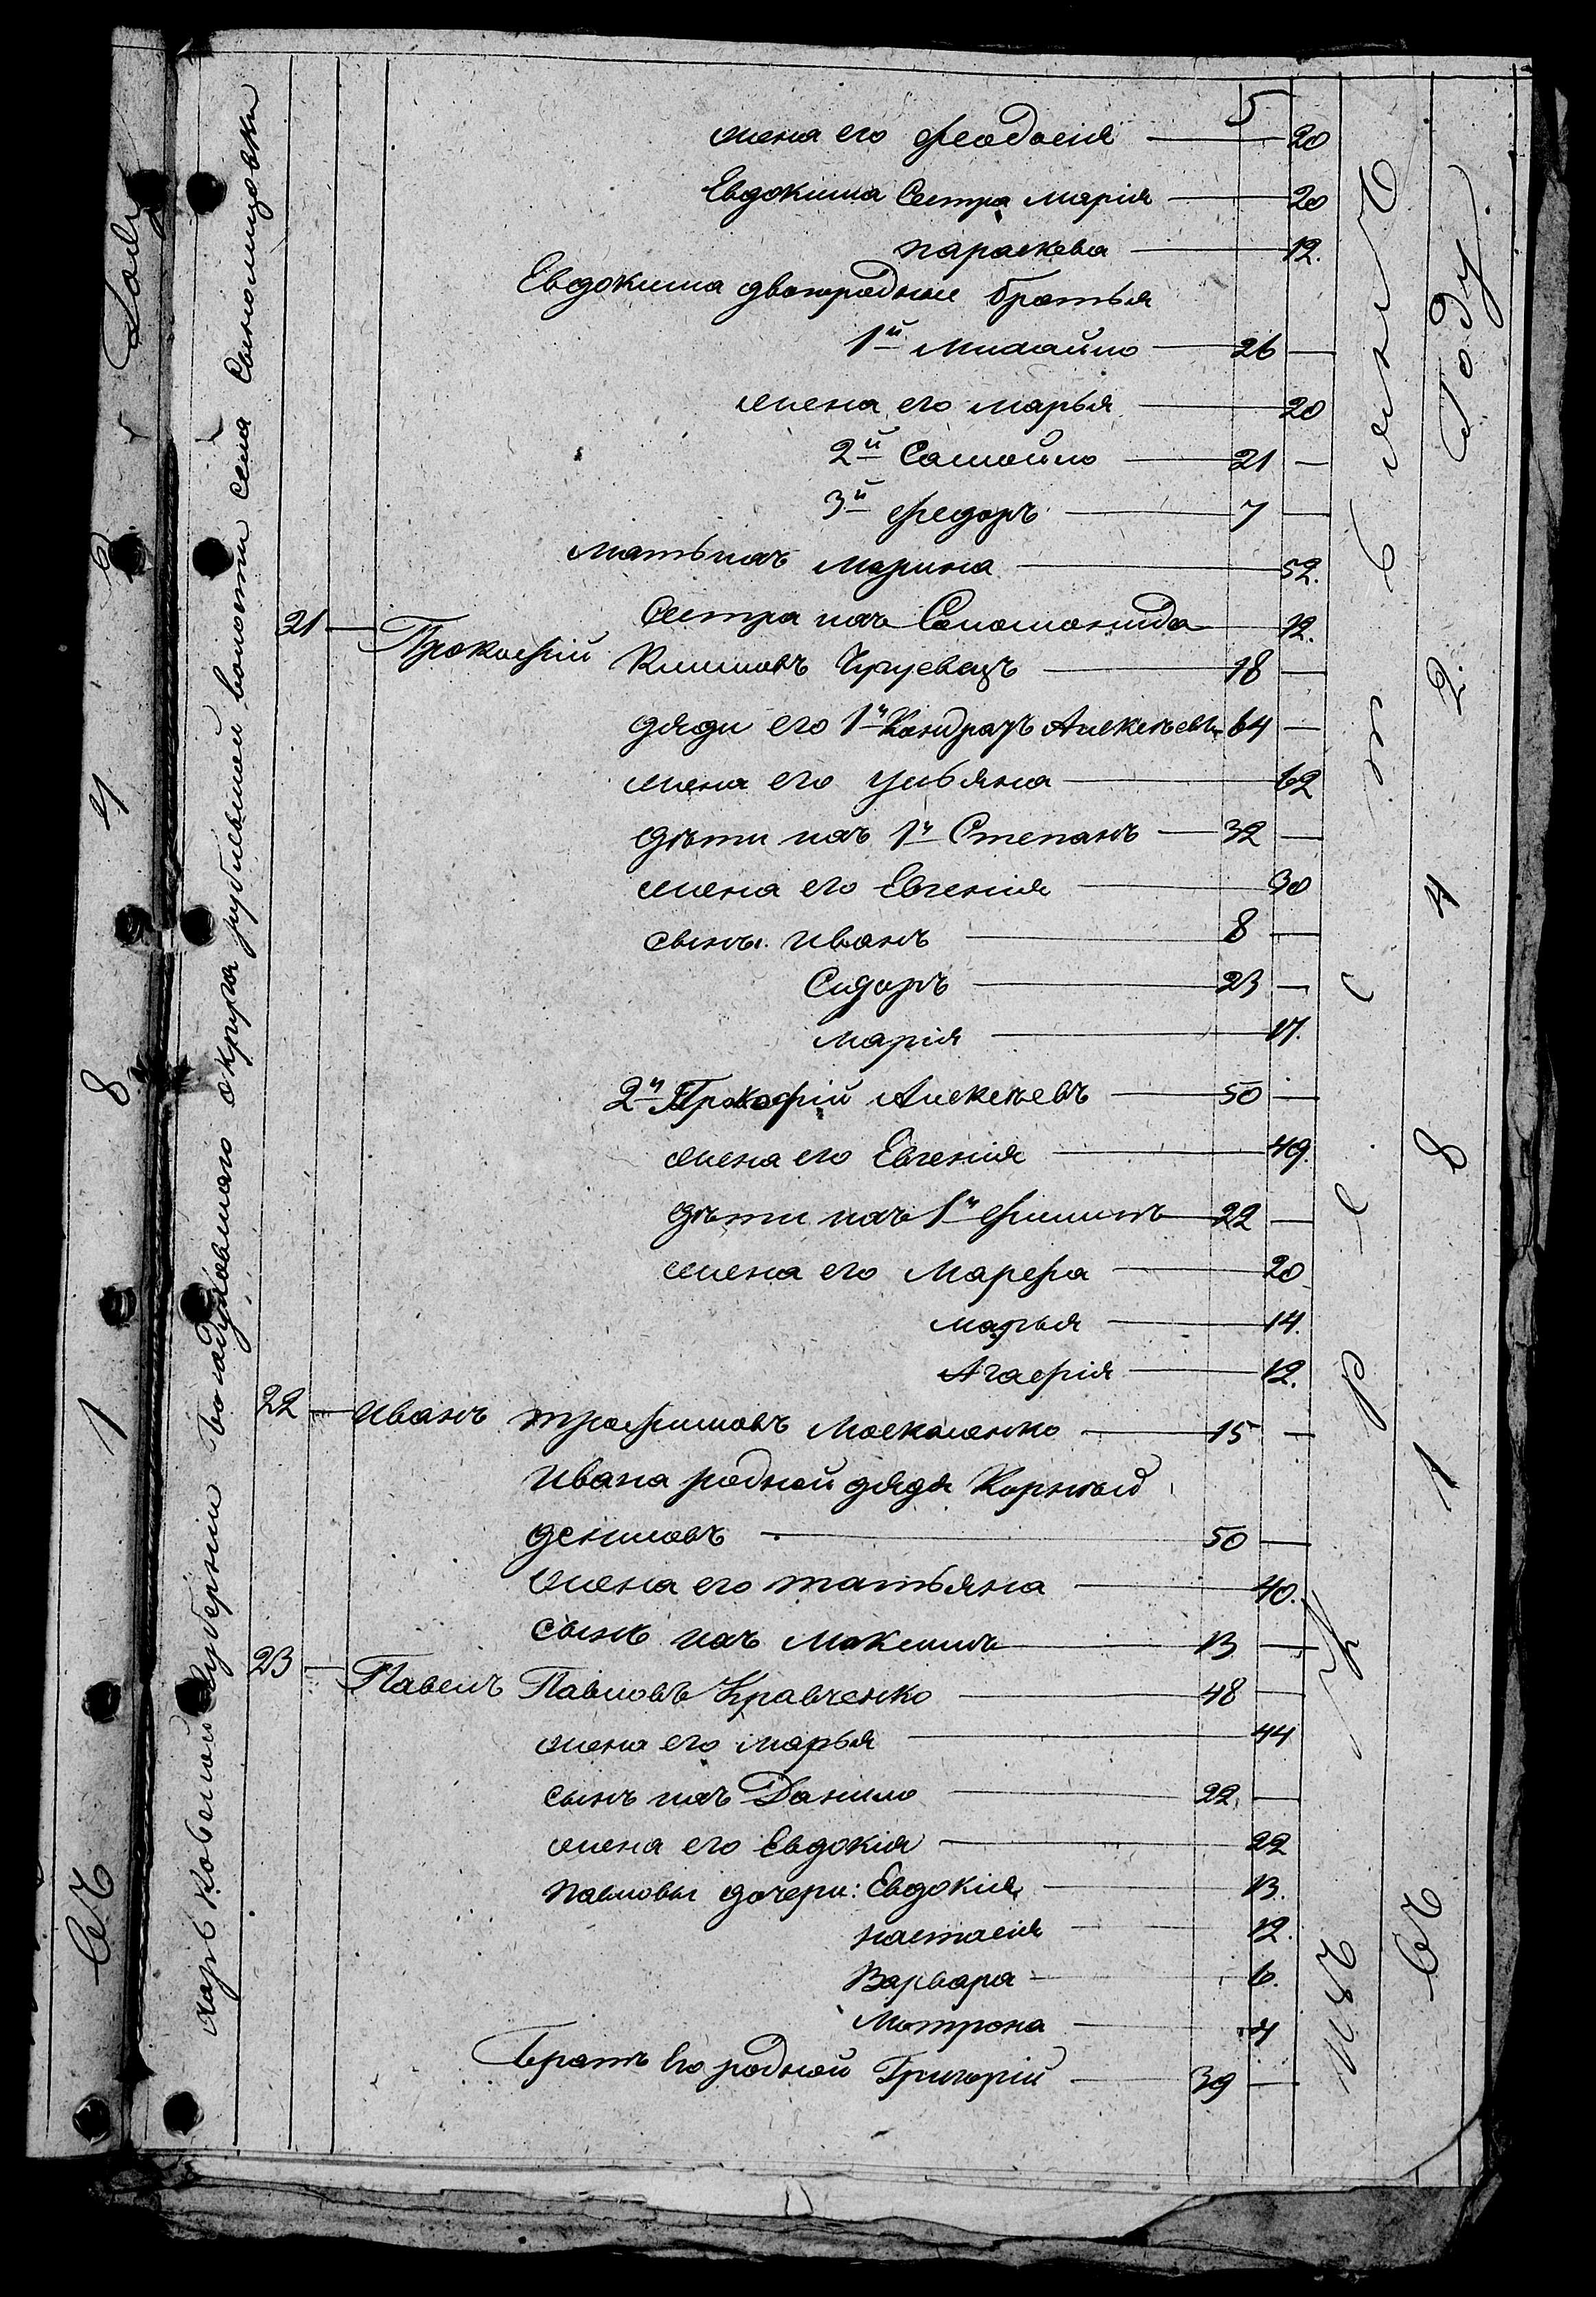 5
жена его Феодосія — 20
Евдокима Сестра Марія — 20
параскева — 12.
Евдокима двоюродные братья
1й Михайло — 26 —
жена его марья — 20
2й Самойло — 21 —
3й Федоръ — 7 —
мать ихъ Марина — 52.
Сестра ихъ Соломонида — 12.
21 — Прокофій Климовъ Чугуевецъ — 18 —
дяди его 1й Кондратъ Алексѣевъ 64 —
жена его ульяна — 62
дѣти ихъ 1й Степанъ — 32 —
жена его Евгенія — 30
сыны. иванъ — 8 —
Сидоръ — 23 —
марія — 17.
2й Прокофій Алексѣевъ — 50 —
жена его Евгенія — 49.
дѣти ихъ 1й Филипъ — 22 —
жена его Марфа — 20
марья — 14.
Агафія — 12.
22 — иванъ трофимовъ Москаленко — 15 —
ивана родной дядя Корнѣй
денисовъ — 50 —
жена его татьяна — 40.
сынъ ихъ Максимъ — 13 —
23 — Павелъ Павловъ Кравченко — 48 —
жена его марья — 44
сынъ ихъ Данило — 22. —
жена его Евдокія — 22
павловы дочери: Евдокія — 13.
настасія — 12.
Варвара — 6.
Матрона — 4
братъ его родной Григорій — 39 —
харьковской губерніи
округа
волости села
въ 1 8 4 2. Году.
Въ 1 8 4